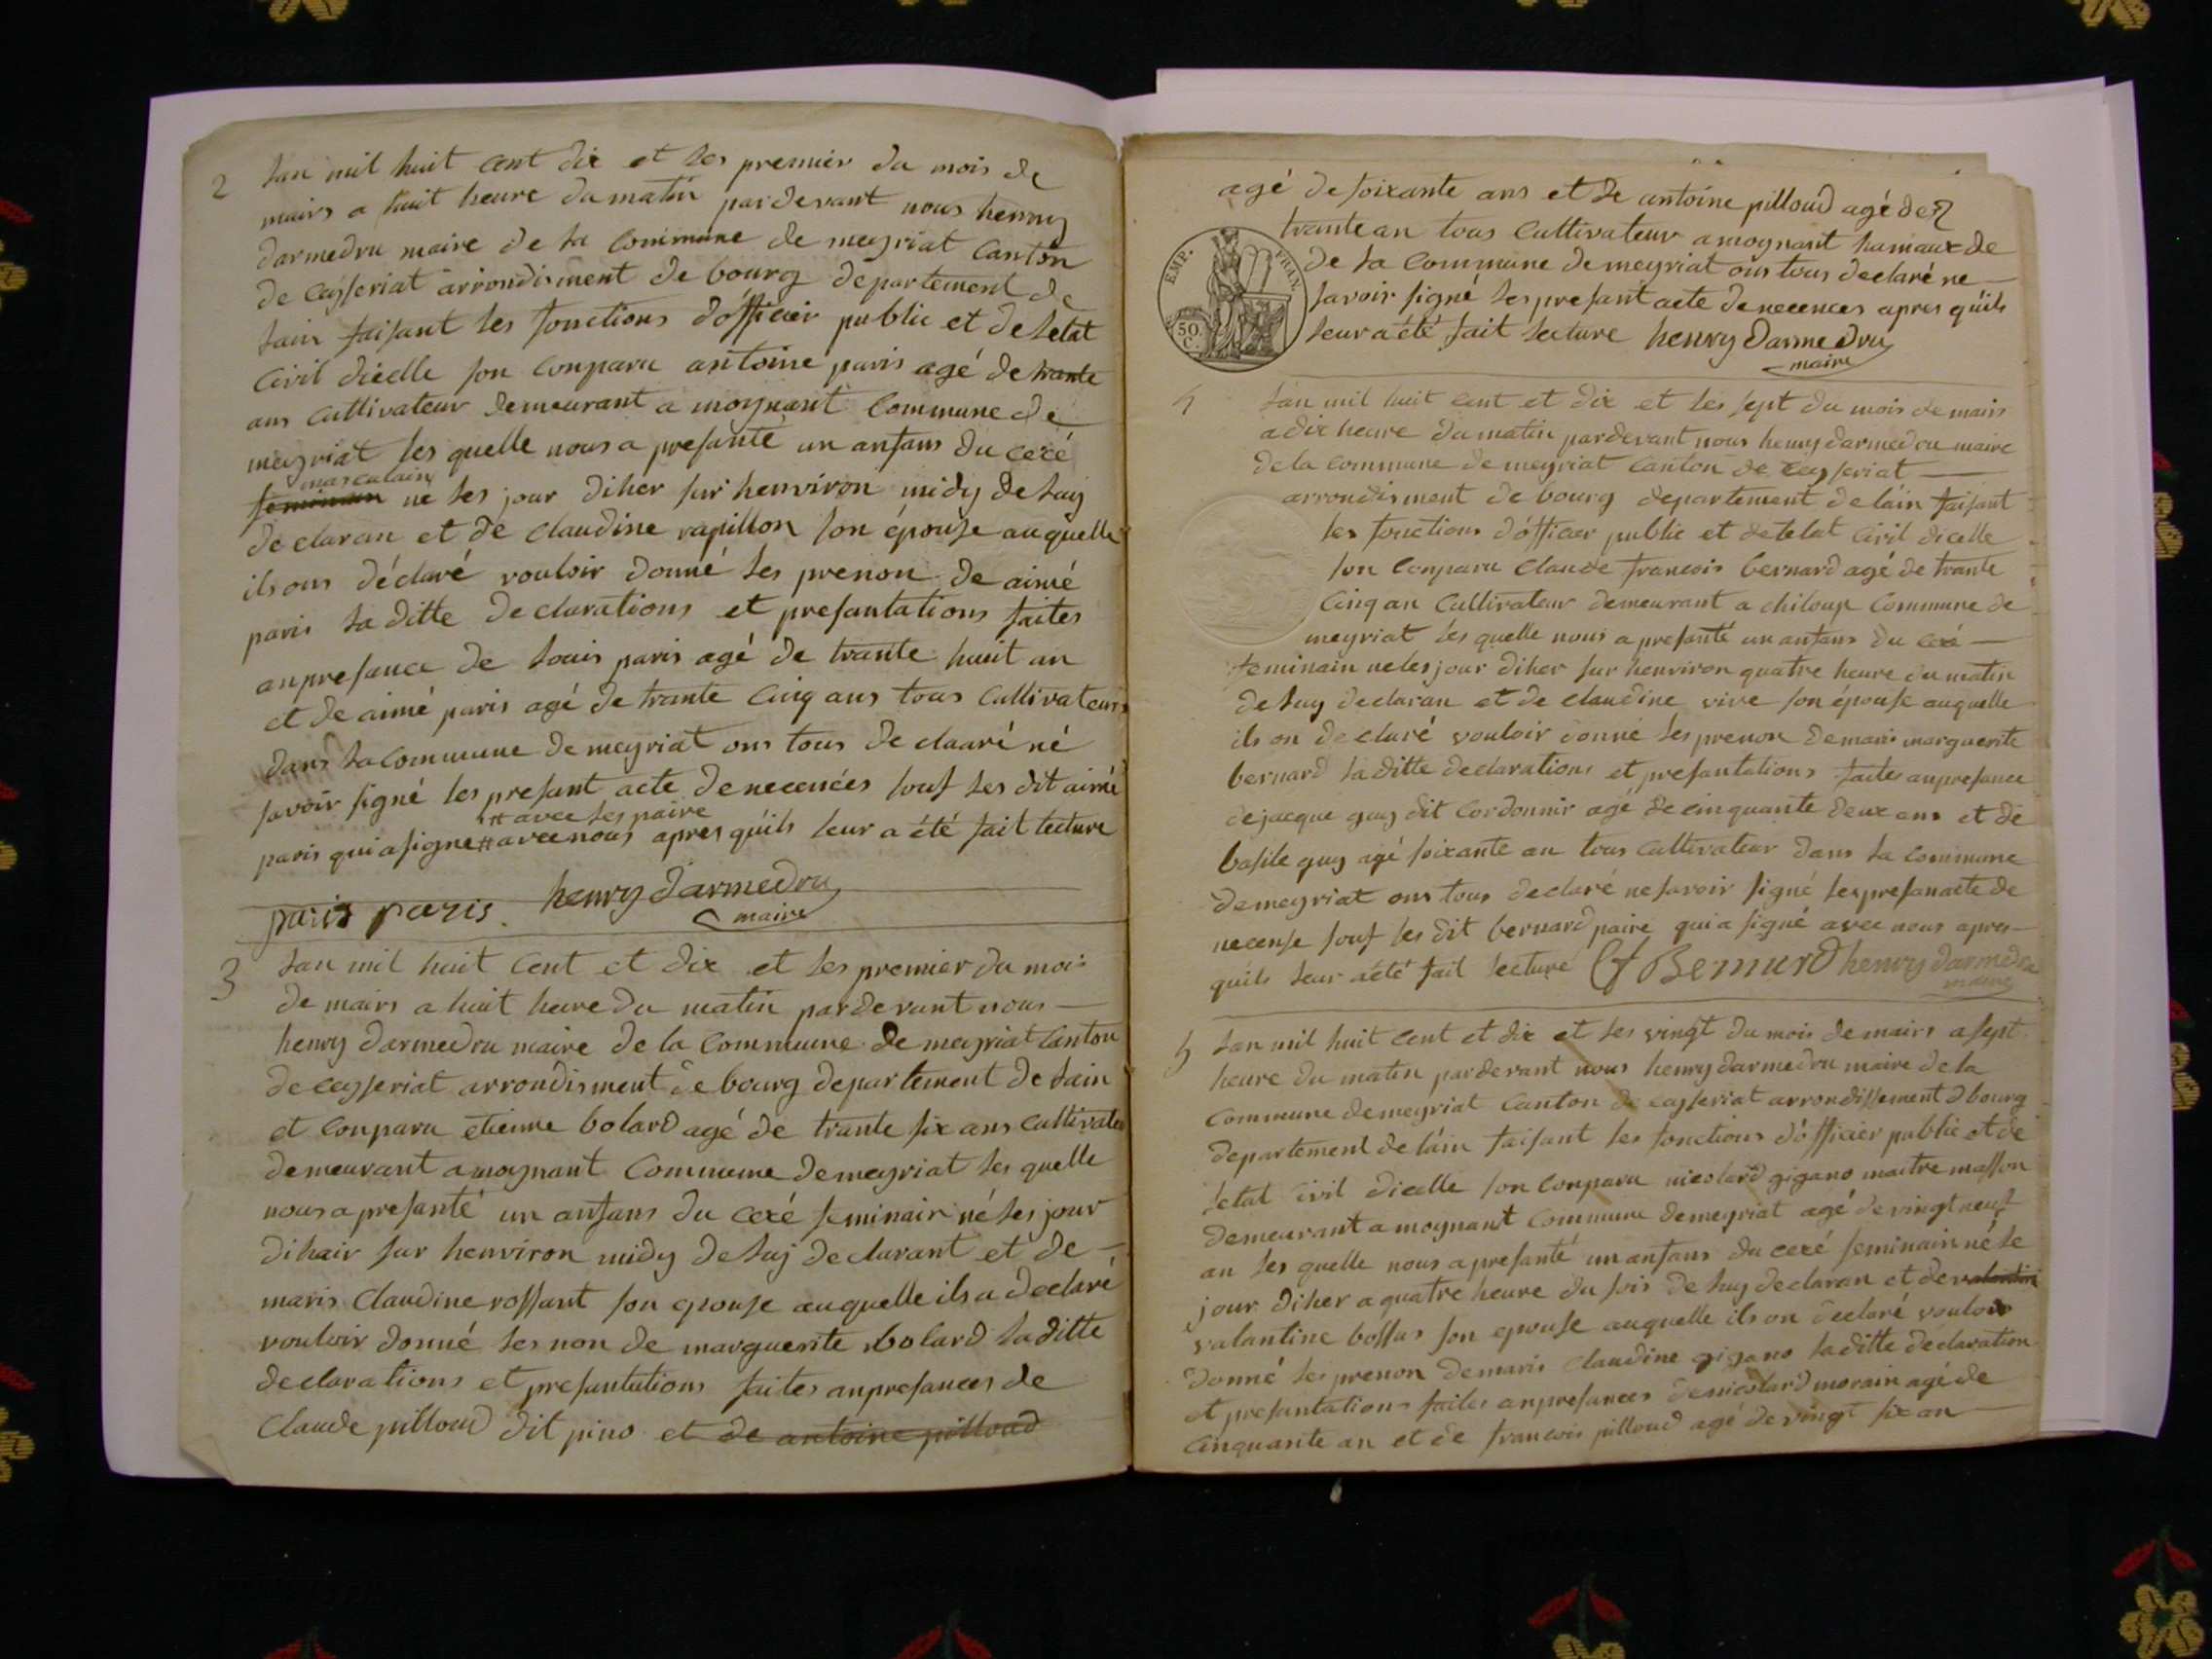 2
lan mil huit cent dix et les premier du mois de
mairs a huit heure du matin pardevant nous henry
darmedru maire de la Commune de meyriat Canton
de ceyseriat arrondisment de bourg departement de
lain faisant les fonctions d'officier public et de letat
Civil dicelle son conparu antoine paris agé de trante
ans cultivateur demeurant a moynant Commune de
meyriat les quelle nous a presanté un anfans du cexé
masculain
feminain ne les jour diher sur henviron midy de luy
declaran et de claudine rapillon son épouse auquelle
ils ons déclaré vouloir donné les prenon de aimé
paris la ditte declarations et presantations faites
anpresance de louis paris agé de trante huit an
et de aimé paris agé de trante cinq ans tous cultivateurs
dans la commune de meyriat ons tous declaaré né
savoir signé les presant acte de necences souf les dit aimé
# avec les paire
paris qui a signe # avec nous apres quils leur a été fait lecture
paris paris. henry darmedru
maire
3
lan mil huit Cent et dix et les premier du mois
de mairs a huit heure du matin pardevant nous
henry darmedru maire de la Commune de meyriat Canton
de ceyseriat arrondisment de bourg departement de lain
et conparu etienne bolard agé de trante six ans cultivateu
demeurant a moynant Commune de meyriat les quelle
nous a presanté un anfans du cexé feminain né les jour
dihair sur henviron midy de luj declarant et de
maris Claudine rossant son epouse auquelle ils a declaré
vouloir donné les non de marguerite bolard la ditte
declarations et presantations faites anpresances de
Claude pilloud dit pino et de antoine pilloud
agé de soixante ans et de antoine pilloud agé de
trante an tous cultivateur a moynant hamaux de
de la Commune de meyriat ons tous declaré ne
savoir signé les presant acte de necences apres quils
leur a été fait lecture henry darmedru
maire
EMP. FRAN.
50
C.
4
lan mil huit cent et dix et les sept du mois de mairs
a dix heure du matin pardevant nous henry darmedru maire
de la commune de meyriat Canton de ceyseriat
arrondisment de bourg departement de lain faisant
les fonctions d'officier public et de letat Civil dicelle
son Conparu Claude francois bernard agé de trante
Cinq an Cultivateur demeurant a chiloup Commune de
meyriat les quelle nous a presanté un anfans du cexé
feminain ne les jour diher sur henviron quatre heure du matin
de luy declaran et de claudine vive son épouse auquelle
ils on declaré vouloir donné les prenon de maris marguerite
bernard la ditte declarations et presantations faites anpresance
de jacque guy dit Cordonnir agé de cinquante deux ans et de
basile guy agé soixante an tous cultivateur dans la commune
de meyriat ons tous declaré ne savoir signé les presanacte de
necense souf les dit bernard paire qui a signé avec nous apres
quils leur a été fait lecture Cf Bernard henry darmedru
maire
5
lan mil huit Cent et dix et les vingt du mois de mairs a sept
heure du matin pardevant nous henry darmedru maire de la
Commune de meyriat Canton de ceyseriat arrondissement d bourg
departement de lain faisant les fonctions d'officier public et de
letat Civil dicelle son conparu nicolard gigano maitre masson
demeurant a moynant Commune de meyriat agé de vingt neuf
an les quelle nous a presanté un anfans du cexé feminain né le
jour diher a quatre heure du soir de luy declaran et de valantini
valantine bossus son epouse auquelle ils on declaré vouloir
donné les prenon de maris Claudine gigano la ditte declaration
et presantations faites anpresances de nicolard morain agé de
Cinquante an et de francois pilloud agé de vingt six an